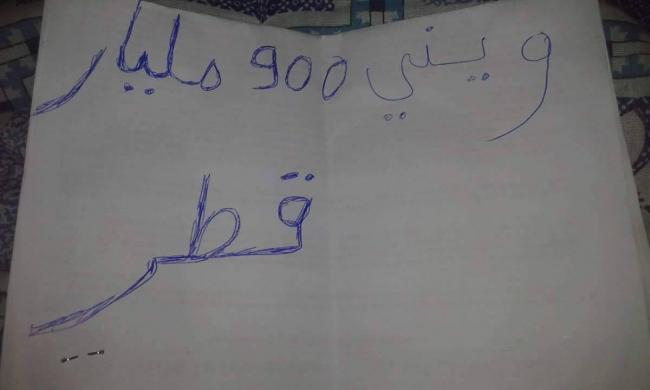 ويني 900 مليار
قطر